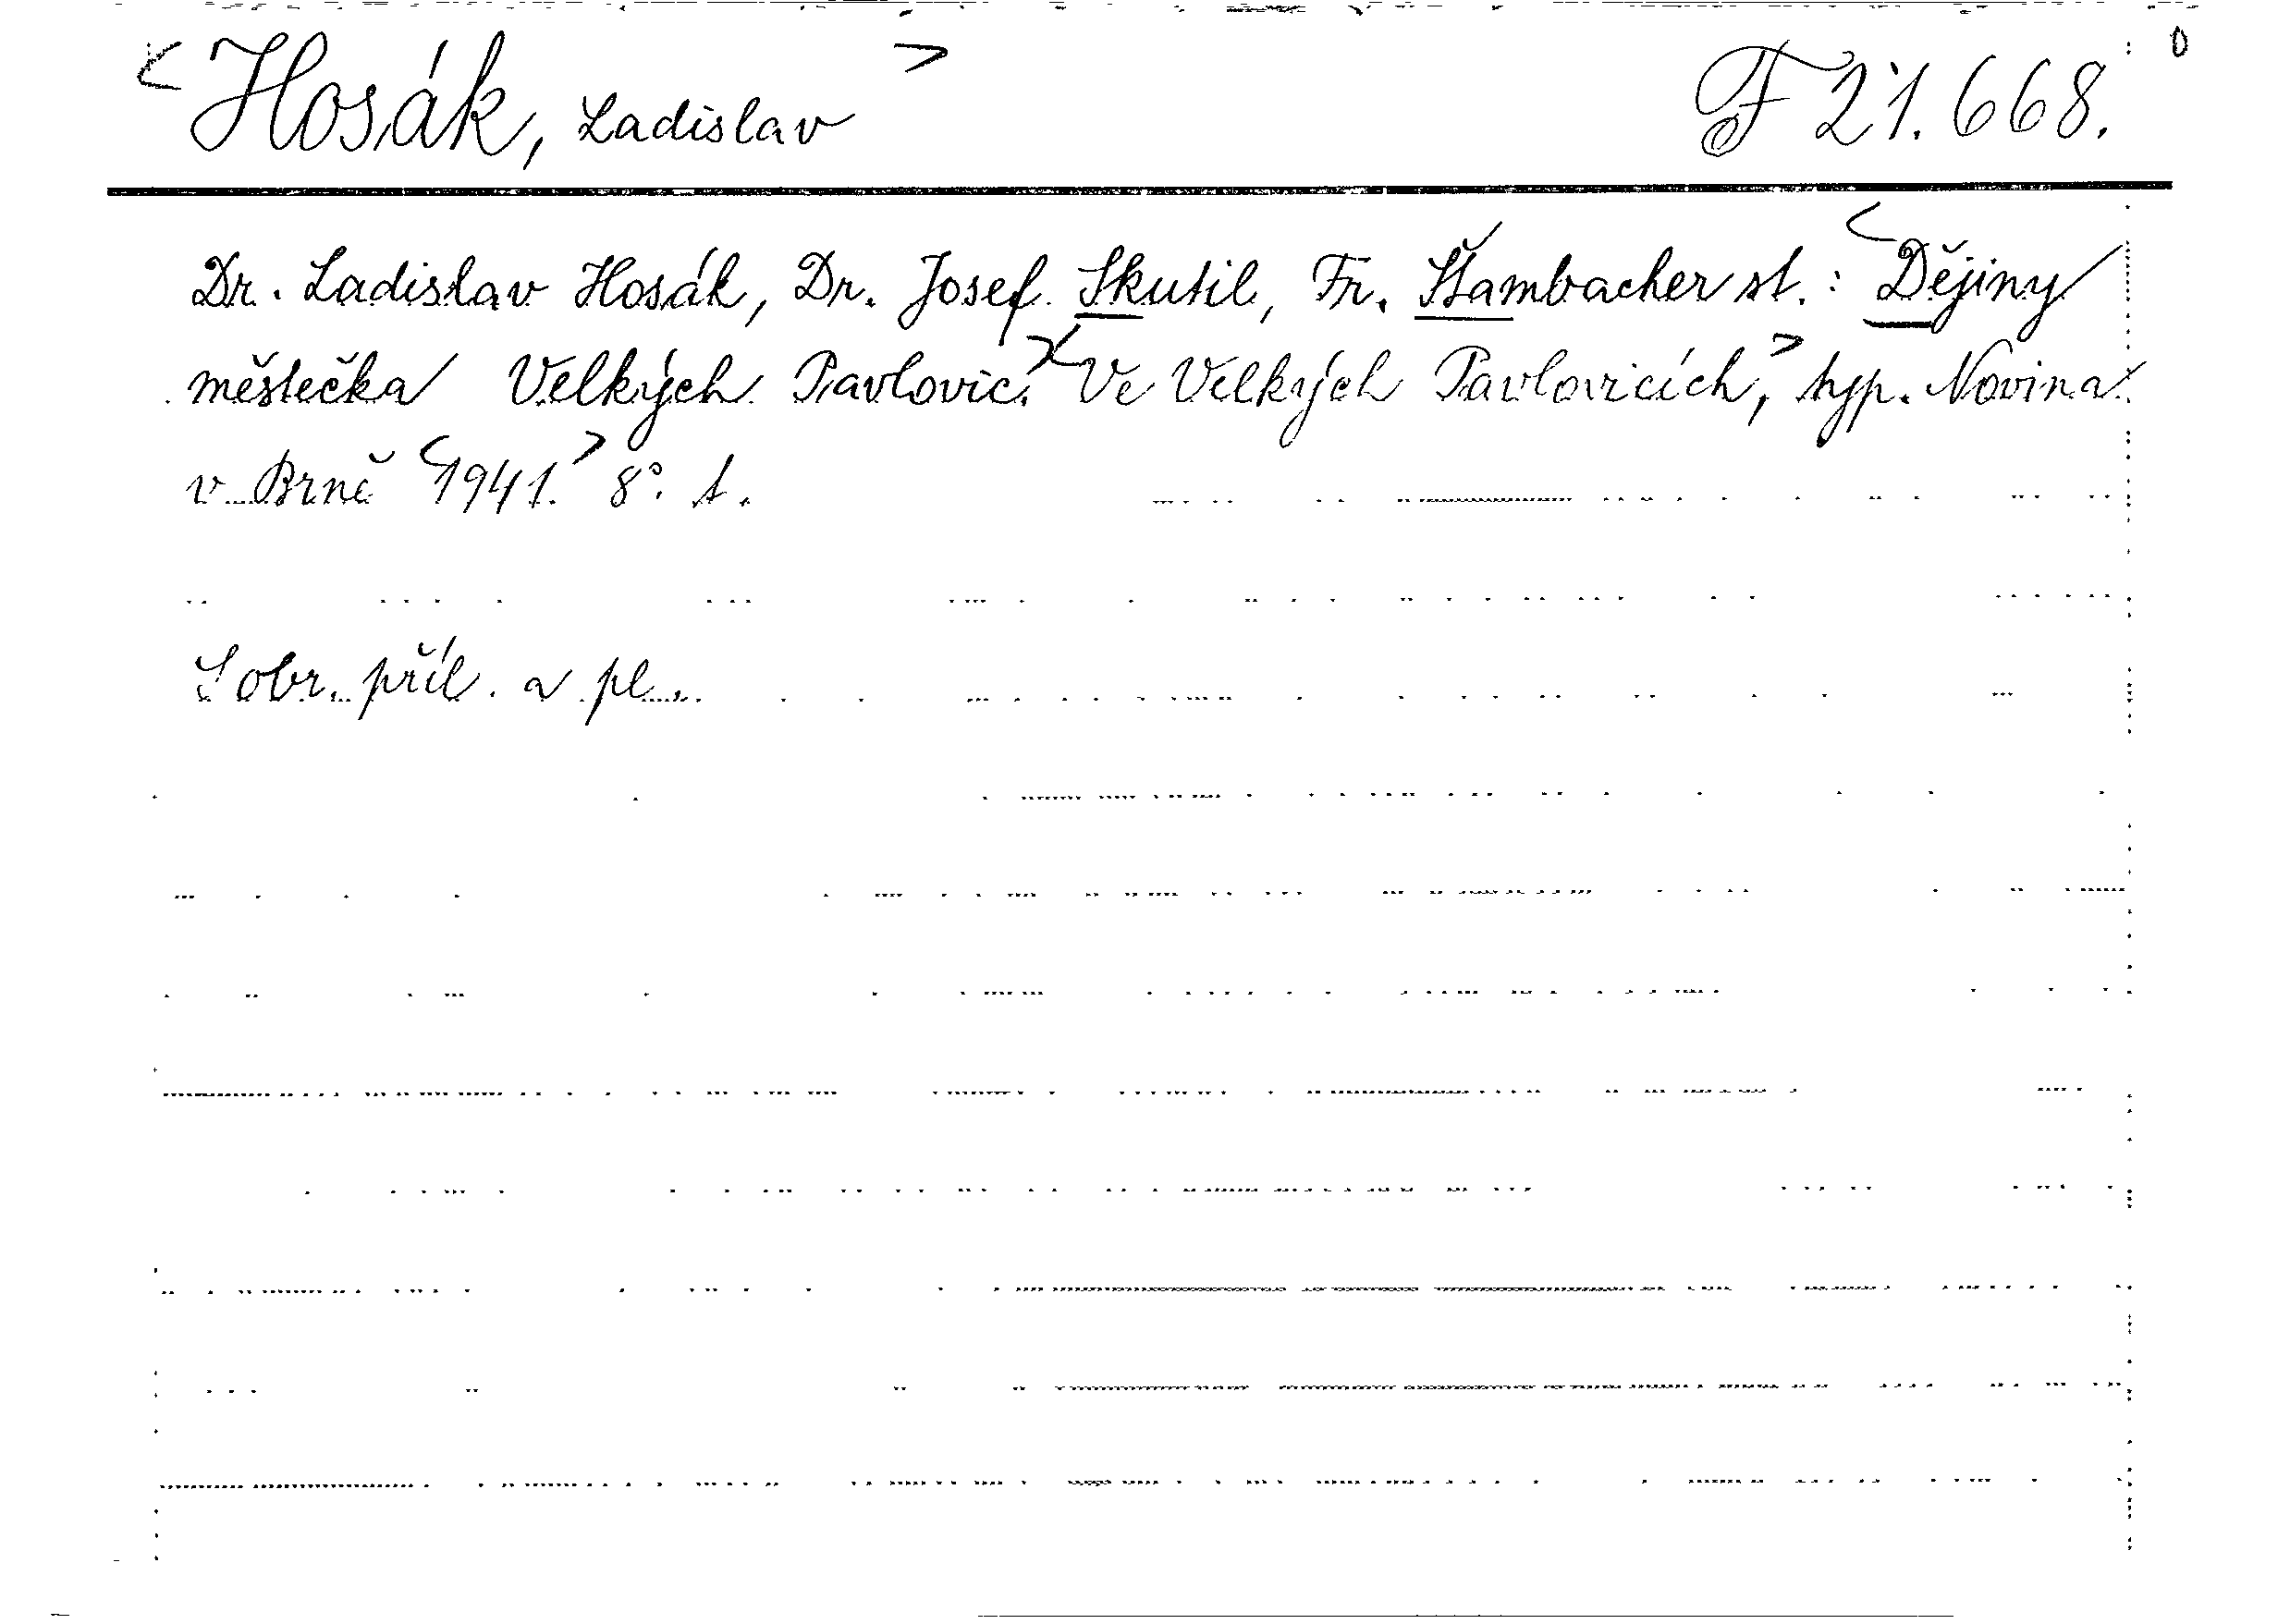 <Hosák, Ladislav> F 21.668.
Dr. Ladislav Hosák, Dr. Josef Skutil, Fr. Štambacher st.: <Dějiny
městečka Velkých Pavlovic.><Ve Velkých Pavlovicích,> typ. Novina
v Brně <1941.> 8°. 1.
S obr. příl. a pl.